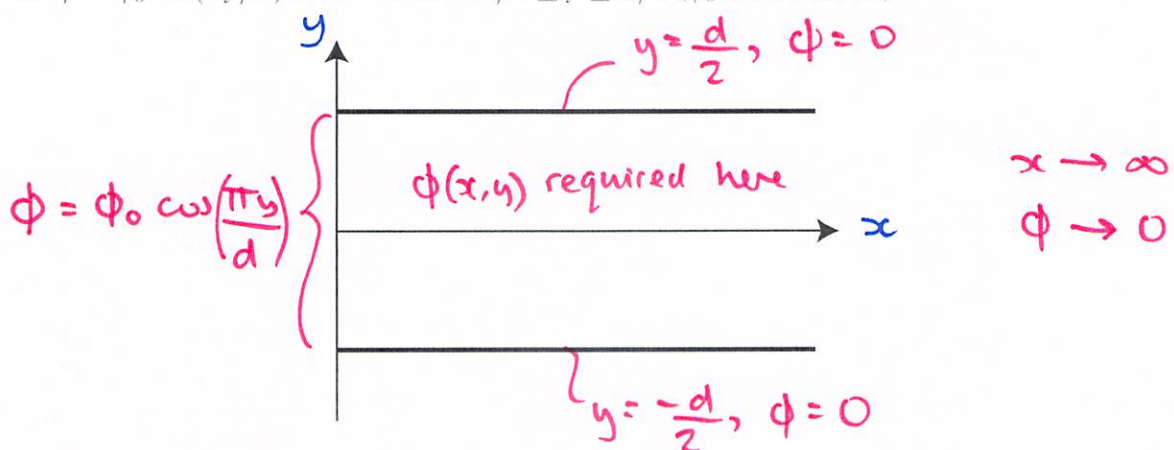 y
y = d/2, ϕ = 0
ϕ = ϕ₀ cos(πy/d)
ϕ(x,y) required here
x → ∞
x
ϕ → 0
y = -d/2, ϕ = 0